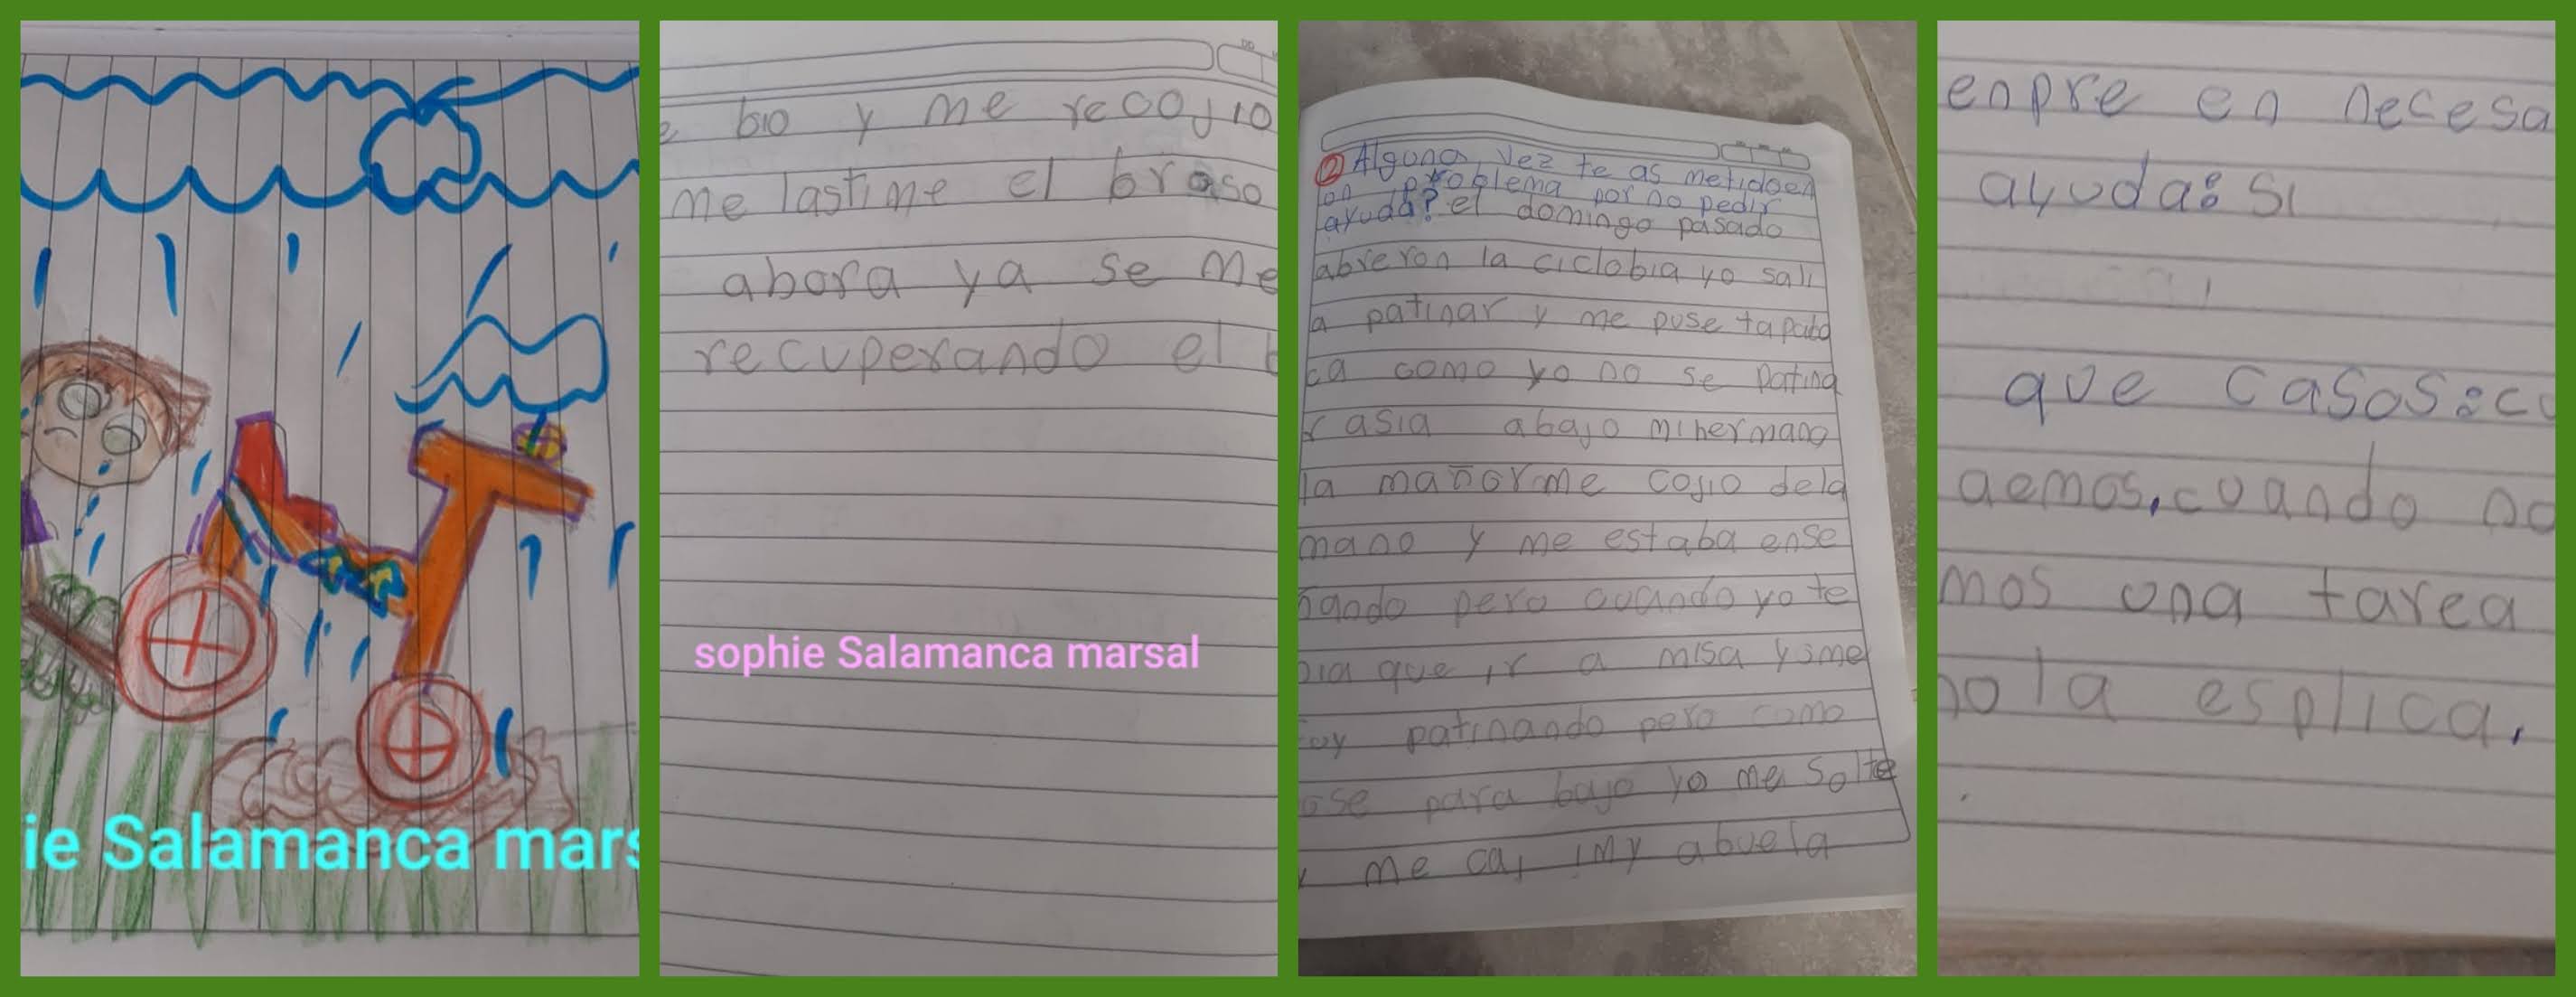 ie Salamanca mars
e bio y me recojio
me lastime el braso
abora ya se me
recuperando el
sophie Salamanca marsal
② Alguna vez te as metido en
on problema por no pedir
ayuda? el domingo pasado
abreron la ciclobia yo sali
a patinar y me puse tapabo
ca como yo no se patina
r asia abajo mi hermano
la mañor me cojio dela
mano y me estaba ense
ñando pero cuando yo te
bia que ir a misa y
oy patinando pero como
ose para bajo yo me solte
y me cai my abuela
enpre en necesa
ayuda: si
que casos: cu
aemos, cuando no
mos una tarea
no la esplica,